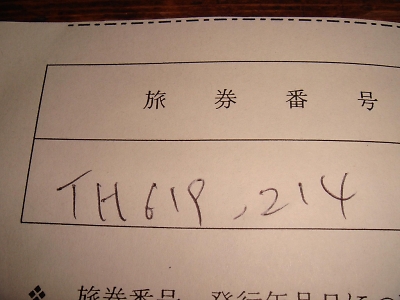 旅 券 番 号
TH619,214
❖ 旅券番号、発行年月日につ